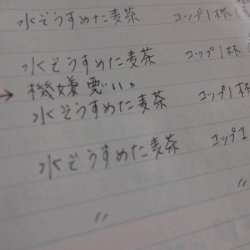 水ぞうすめた麦茶 コップ1杯
水ぞうすめた麦茶 コップ1杯
→ 機嫌悪い。
水ぞうすめた麦茶 コップ1杯
水ぞうすめた麦茶 コップ1
〃
〃